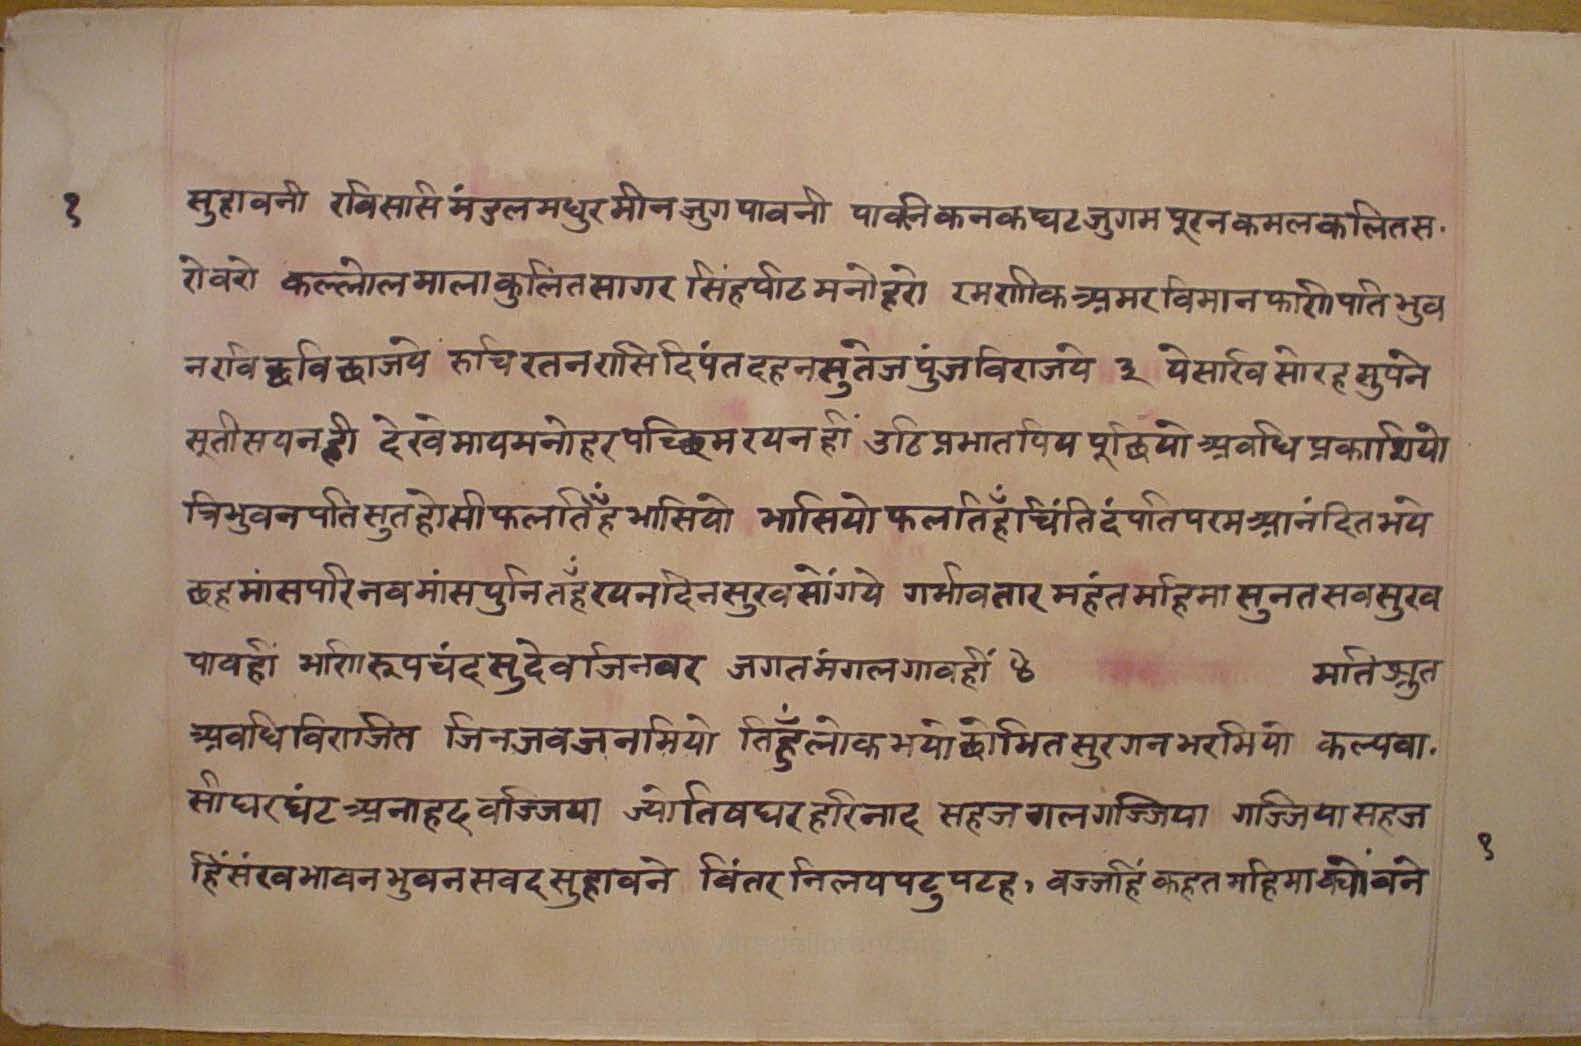 १
सुहावनी रविससि मंडल मधुर मीन जुग पावनी पावनि कनक घट जुगम पूरन कमल कलित स.
रोवरो कल्लोल माला कुलित सागर सिंहपीठ मनोहरो रमणीक अमर विमान फणिपति भुव
न रवि छवि छाजये रुचि रतन रासि दिपंत दहन सुतेज पुंज विराजये ३ ये सखि सोरह सुपने
सूती सयनही देखे माय मनोहर पच्छिम रयनहीं उठि प्रभात पिय पूछियो अवधि प्रकाशियो
त्रिभुवनपति सुत होसी फल तिहँ भासियो भासियो फल तिहँ चिंति दंपति परम आनंदित भये
छह मांस परि नव मांस पुनि तहँ रयन दिन सुख सों गये गर्भावतार महंत महिमा सुनत सब सुख
पावहीं भणि रूपचंद सुदेव जिनवर जगत मंगल गावहीं ४ मति श्रुत
अवधि विराजित जिन जव जनमियो तिहुँ लोक भयो छोभित सुरगन भरमियो कल्पवा.
सी घर घंट अनाहद वज्जिया ज्योतिष घर हरिनाद सहज गल गज्जिया गज्जिया सहज
हिं संख भावन भुवन सवद सुहावने विंतर निलय पटु पटह, वज्जहिं कहत महिमा क्यों वने
१